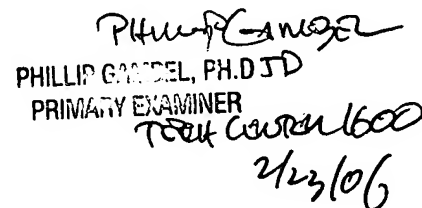 PHILLIP GAMBEL
PHILLIP GAMBEL, PH.D JD
PRIMARY EXAMINER
TECH CENTER 1600
2/23/06